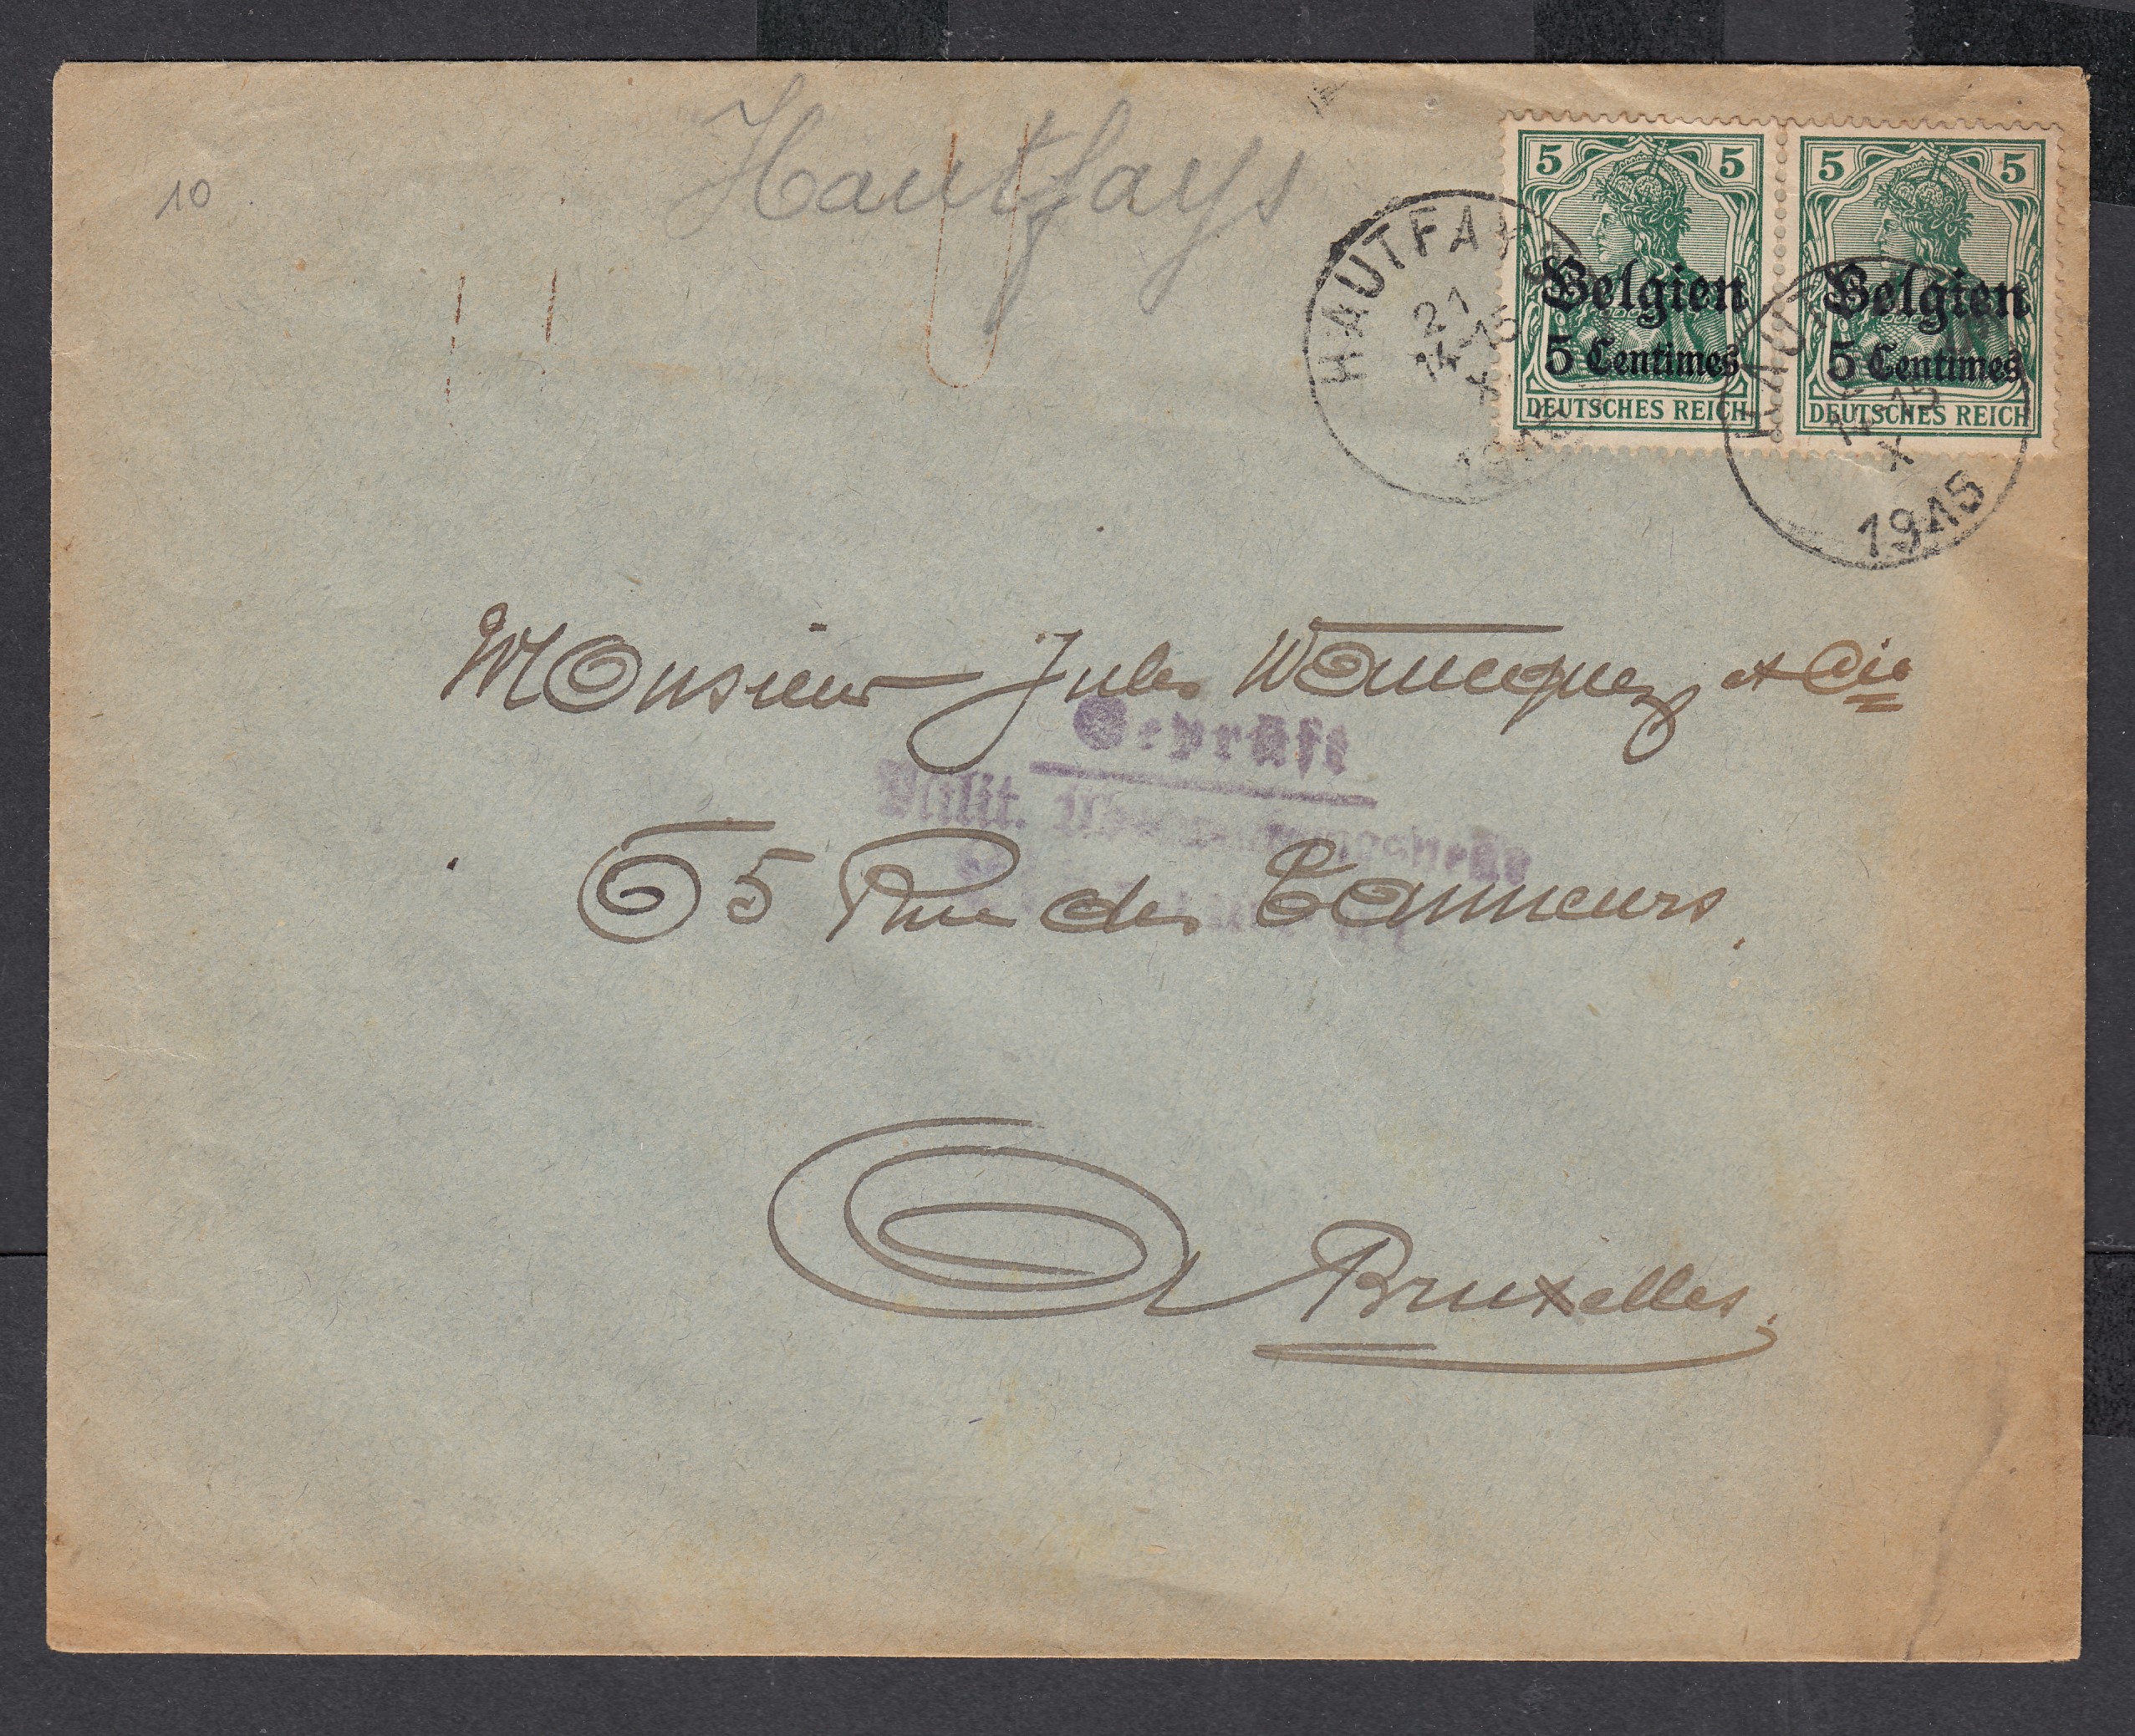 10
Hautfays
5 5
Belgien
5 Centimes
DEUTSCHES REICH
5 5
Belgien
5 Centimes
DEUTSCHES REICH
HAUTFAYS
21
14-15
X
1915
HAUT
15
X
1915
Monsieur Jules Waucquez et Cie
Geprüft
Milit.
65 Rue des Tanneurs
Bruxelles.